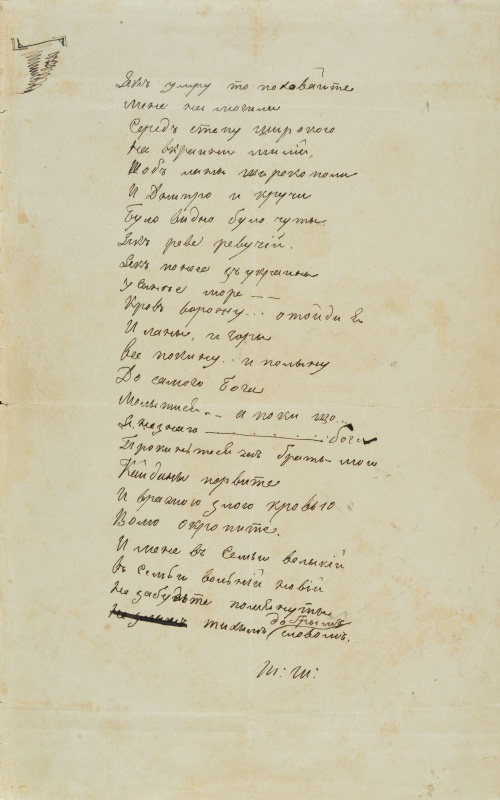 Якъ умру то поховайте
Мене на могыли
Середъ степу широкого
На вкраини милій,
Щобъ ланы широкополи
И Днипро и кручи
Було видно було чуты
Якъ реве ревучій.
Якъ понесе зъ украины
У синье море --
Кровъ ворожу... отойди я
И ланы, и горы
Все покину.. и полыну
До самого Бога
Молытися... а поки що...
Я незнаю ... бога
Прокиньтеся браты мои
Кайданы порвите
И вражою злою кровью
Волю окропите.
И мене въ семьи велыкій
въ семьи вольній новій
Не забудьте помъянуты
тихимъ добрымъ словомъ.
Т: Ш: